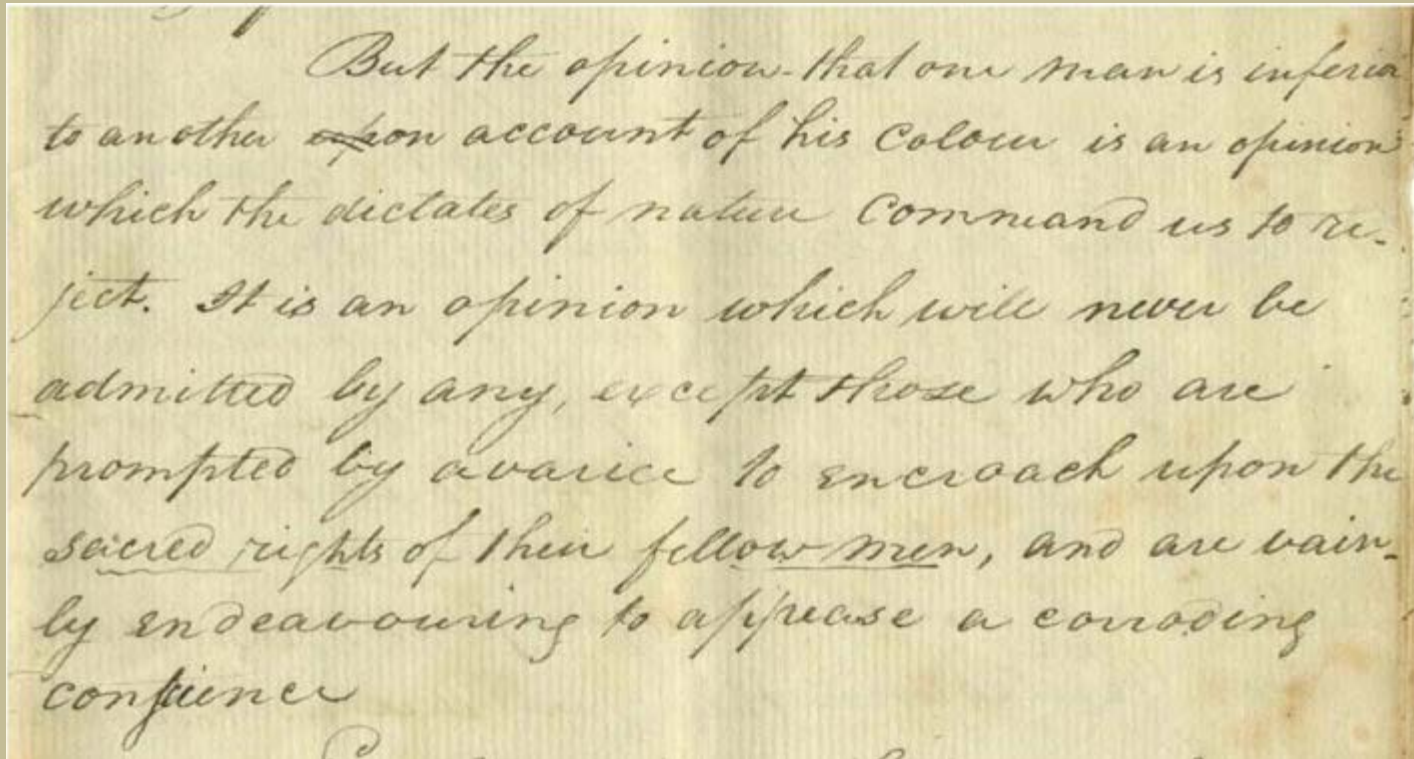 But the opinion that one man is inferior
to another upon account of his Colour is an opinion
which the dictates of nature Command us to re-
ject. It is an opinion which will never be
admitted by any, except those who are
prompted by avarice to encroach upon the
sacred rights of their fellow men, and are vain-
ly endeavouring to appease a corroding
conscience